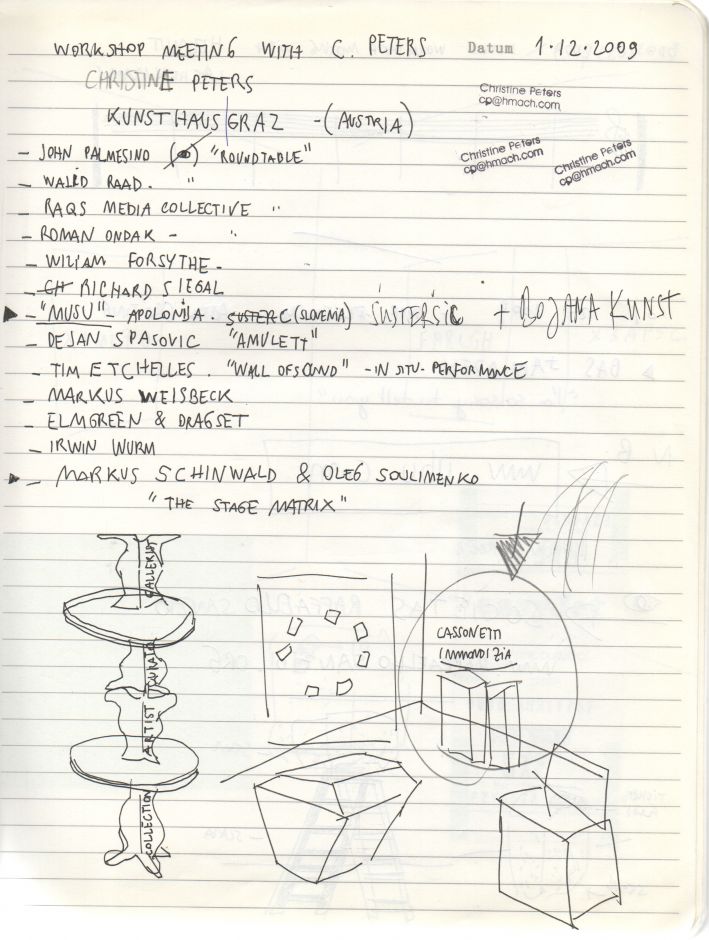 WORKSHOP MEETING WITH C. PETERS Datum 1.12.2009
CHRISTINE PETERS
Christine Peters
cp@hmach.com
KUNSTHAUS GRAZ - (AUSTRIA)
Christine Peters
cp@hmach.com
Christine Peters
cp@hmach.com
- JOHN PALMESINO "ROUNDTABLE"
- WALID RAAD. "
- RAQS MEDIA COLLECTIVE "
- ROMAN ONDAK - "
- WILIAM FORSYTHE -
- CH RICHARD SIEGAL
- "MUSU" - APOLONIJA. SUSTERC (SLOVENIA) SUSTERSIC + BOJANA KUNST
- DEJAN SPASOVIC "AMULETT"
- TIM ETCHELLES. "WALL OF SOUND" - IN SITU - PERFORMANCE
- MARKUS WEISBECK
- ELMGREEN & DRAGSET
- IRWIN WURM
- MARKUS SCHINWALD & OLEG SOULIMENKO
"THE STAGE MATRIX"
GALLERIST
CURATOR
ARTIST
COLLECTION
CASSONETTI
IMMONDIZIA